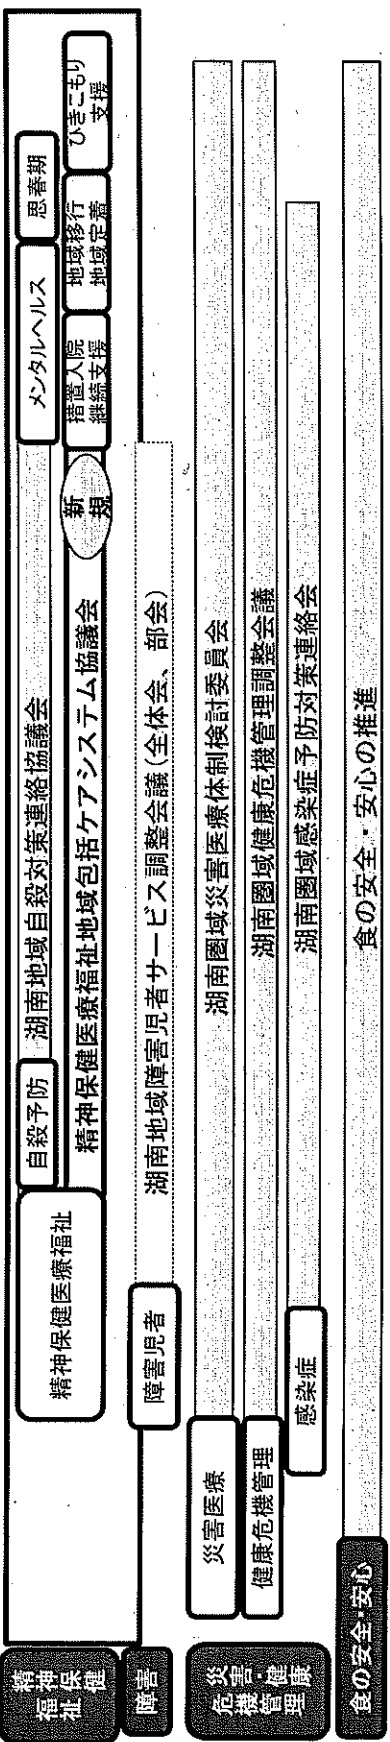 精神保健
福祉
精神保健医療福祉
自殺予防
湖南地域自殺対策連絡協議会
メンタルヘルス
思春期
精神保健医療福祉地域包括ケアシステム協議会
新規
措置入院
継続支援
地域移行
地域定着
ひきこもり
支援
障害
障害児者
湖南地域障害児者サービス調整会議(全体会、部会)
災害・健康
危機管理
災害医療
湖南圏域災害医療体制検討委員会
健康危機管理
湖南圏域健康危機管理調整会議
感染症
湖南圏域感染症予防対策連絡会
食の安全・安心
食の安全・安心の推進